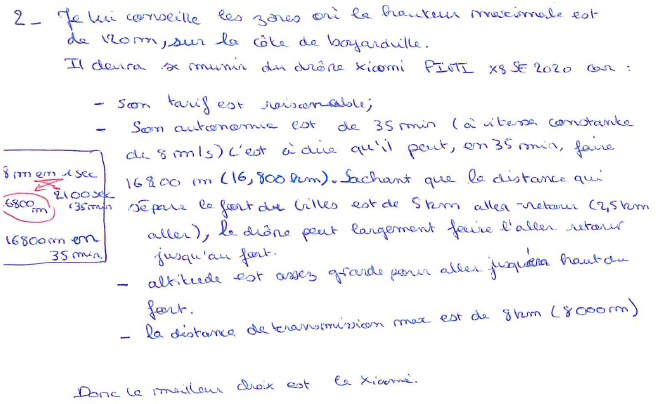 2 - Je lui conseille les zones où la hauteur maximale est
de 120m, sur la côte de boyardville.
Il devra se munir du drône xiaomi FIMI X8 SE 2020 car :
- Son tarif est raisonnable;
- Son autonomie est de 35 min (à vitesse constante
de 8 m/s) c'est à dire qu'il peut, en 35 min, faire
16800 m (16,800 km). Sachant que la distance qui
sépare le fort des villes est de 5 km aller-retour (2,5 km
aller), le drône peut largement faire l'aller retour
jusqu'au fort.
- altitude est assez grande pour aller jusqu'en haut du
fort.
- la distance de transmission max est de 8 km (8000m)
8 m en 1 sec
2100 sec
6800 m
35 min
16800m en
35 min
Donc le meilleur choix est le xiaomi.